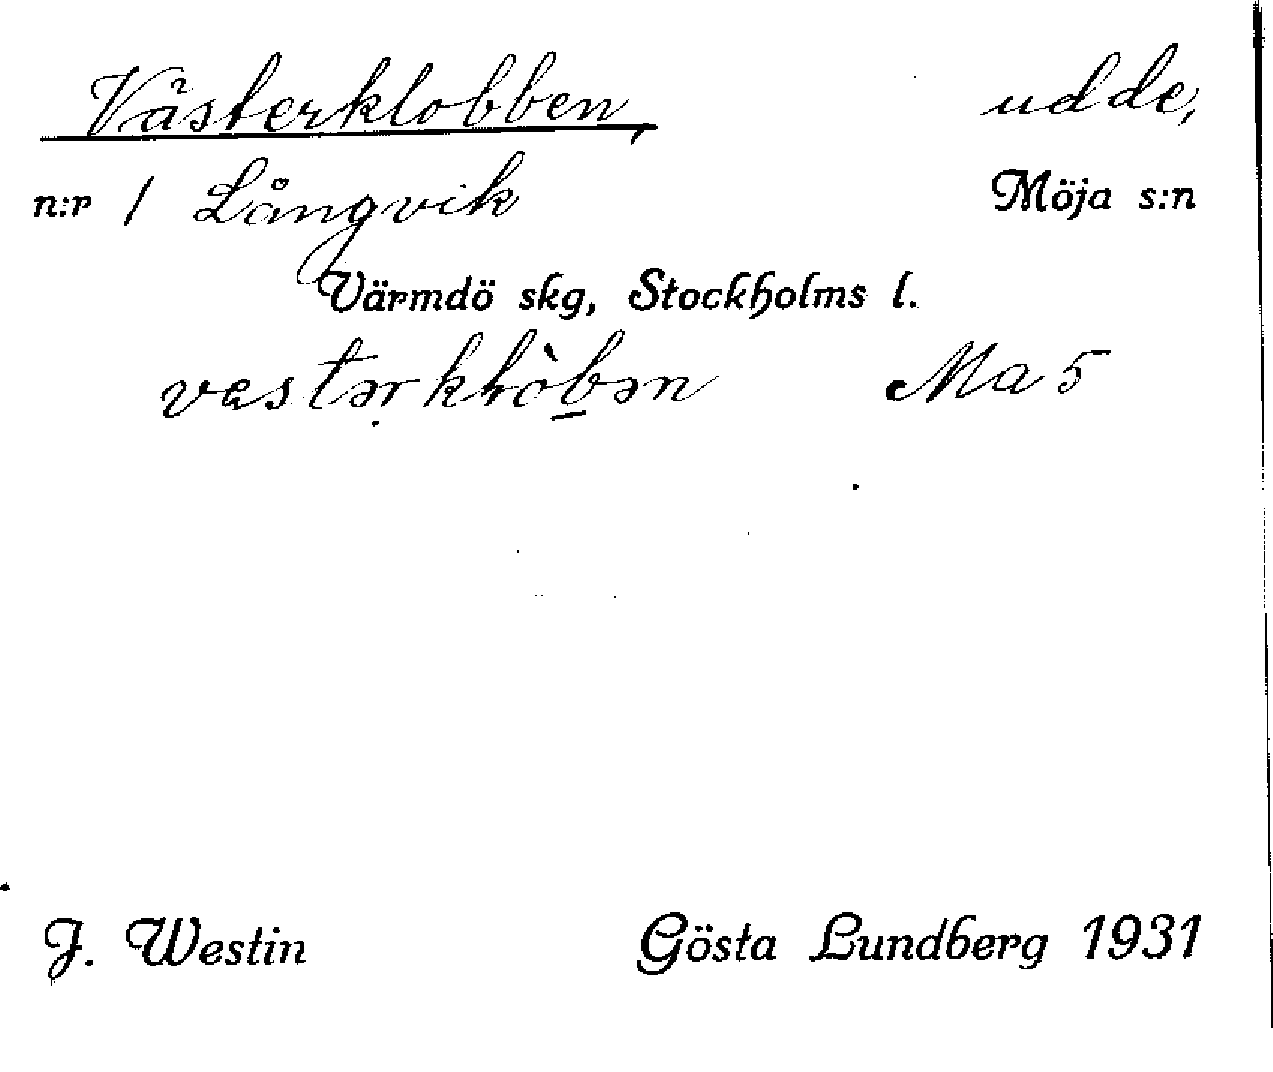 Västerklobben, udde,
n:r 1 Långvik Möja s:n
Värmdö skg, Stockholms l.
Ma 5
J. Westin Gösta Lundberg 1931